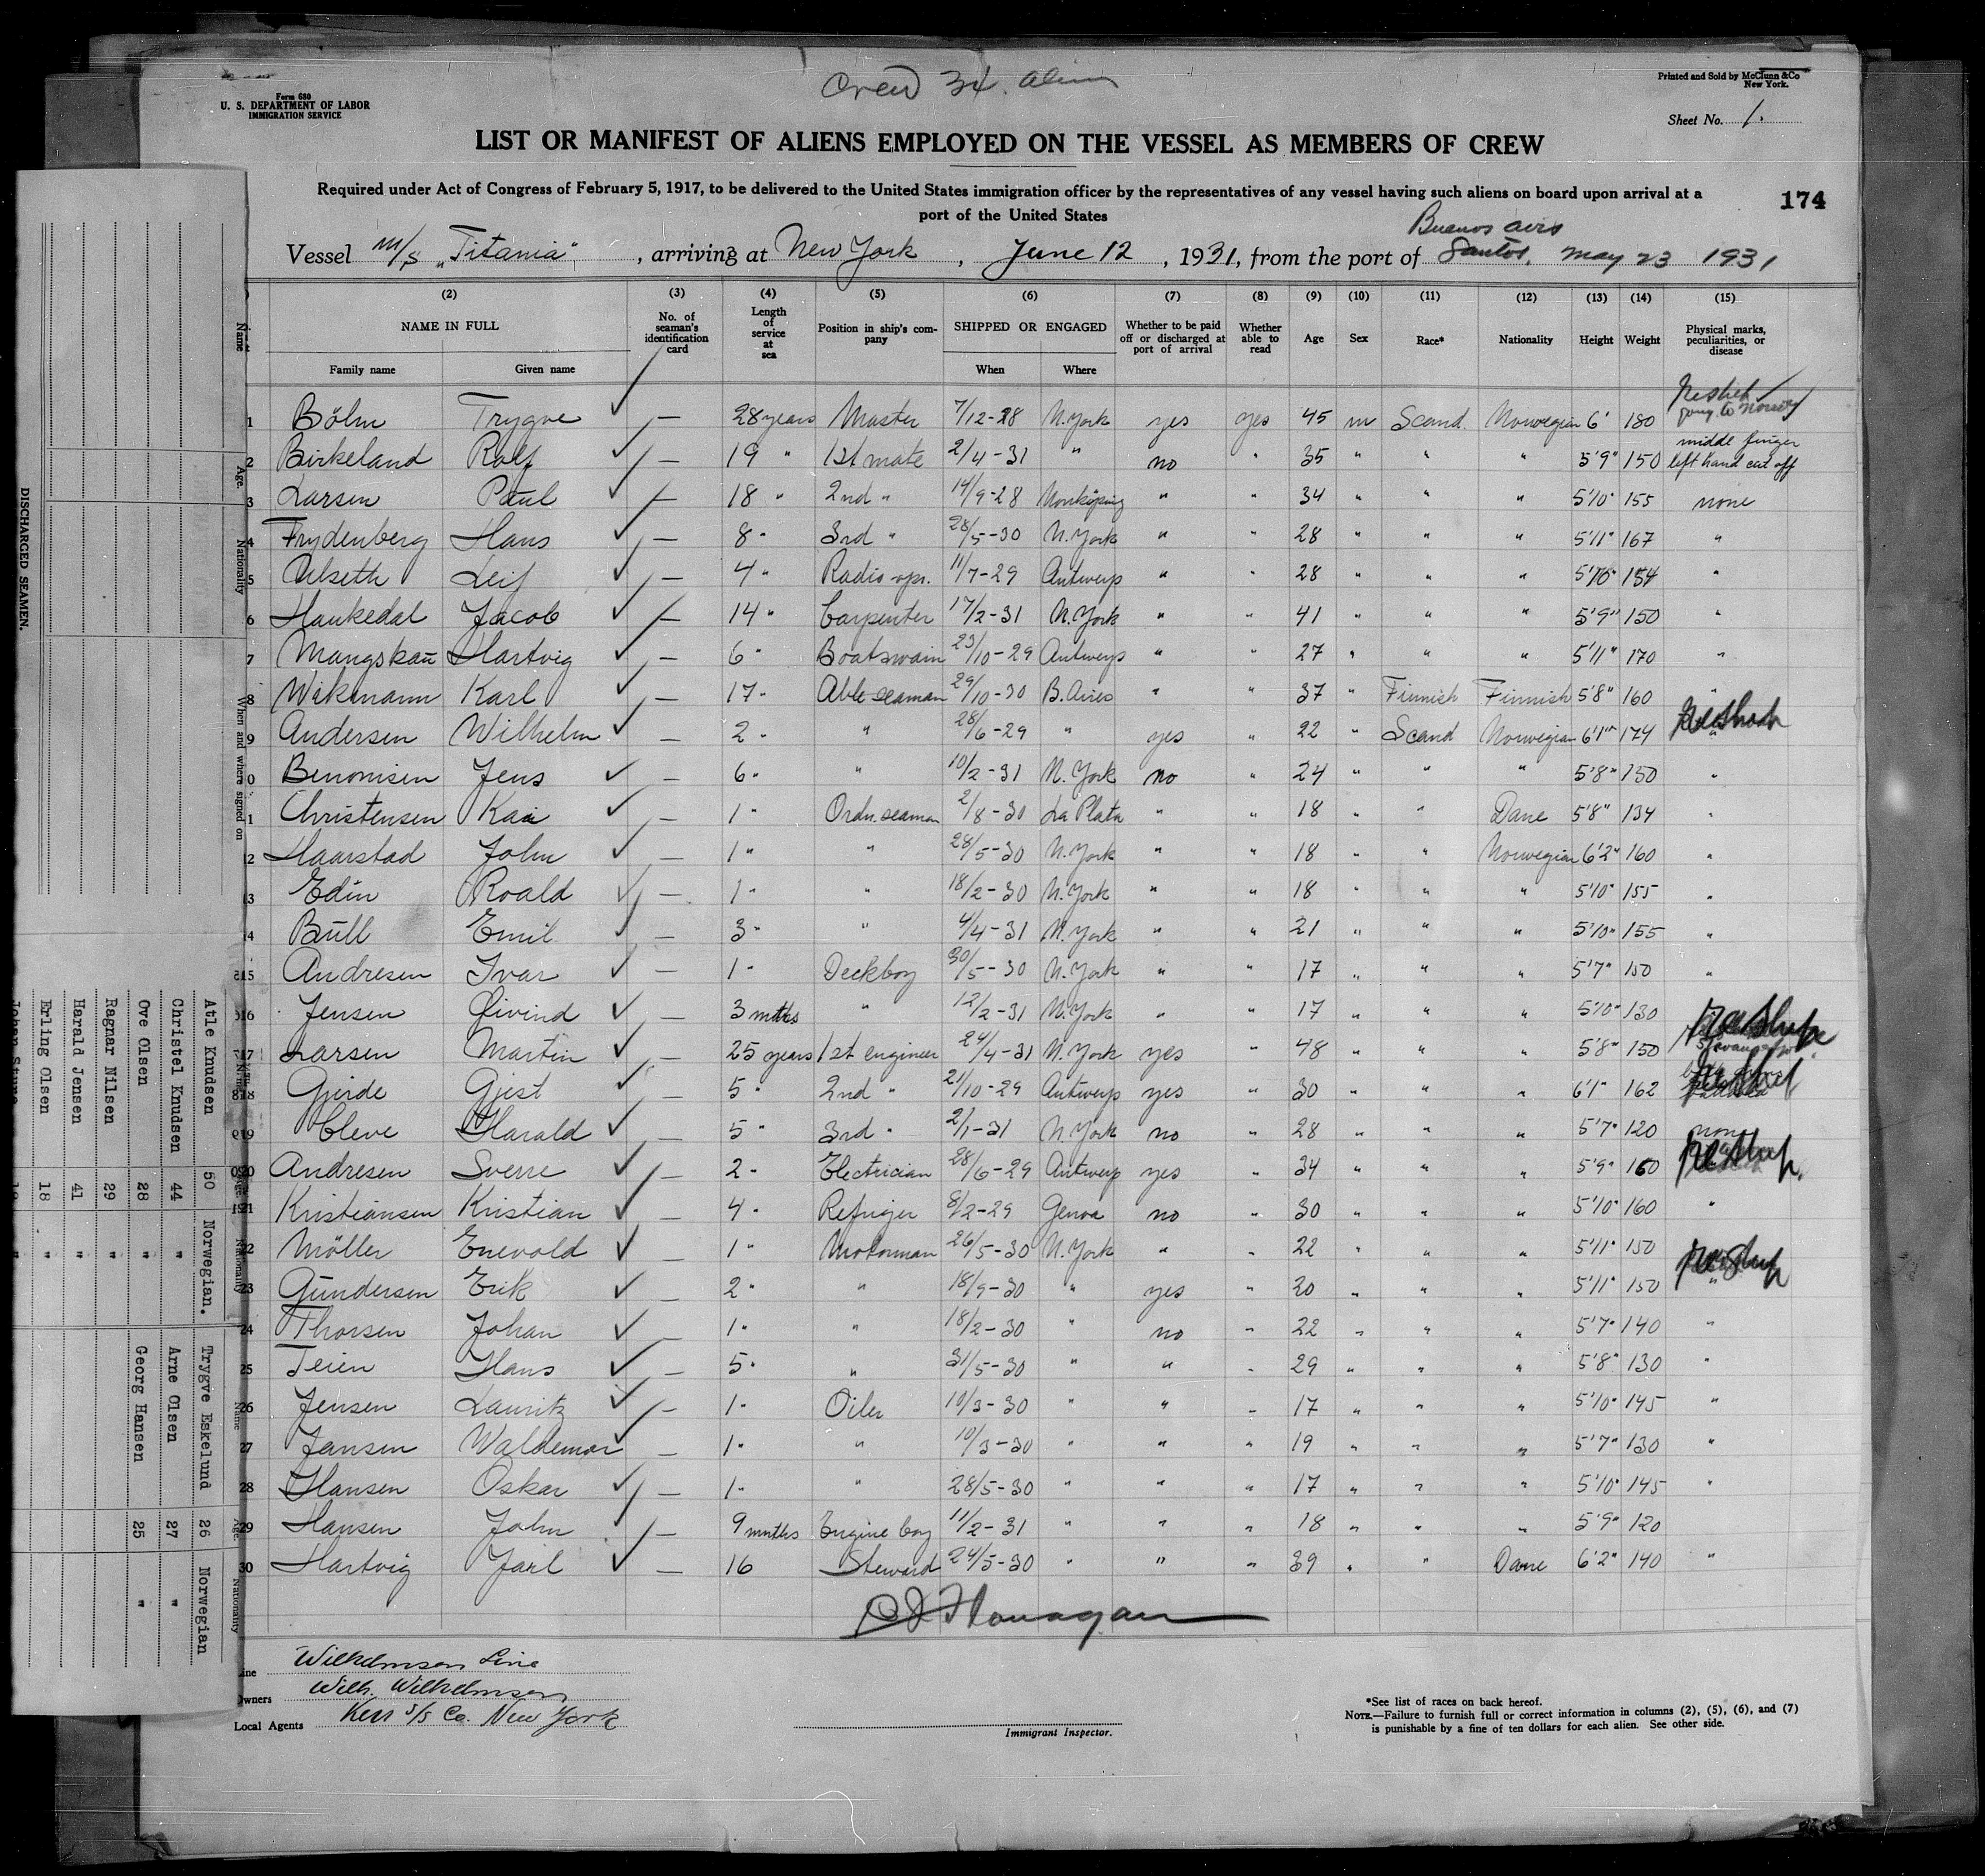 Crew 34. alien
Form 680
U. S. DEPARTMENT OF LABOR
IMMIGRATION SERVICE
Printed and Sold by McClunn & Co
New York.
Sheet No. 1.
LIST OR MANIFEST OF ALIENS EMPLOYED ON THE VESSEL AS MEMBERS OF CREW
Required under Act of Congress of February 5, 1917, to be delivered to the United States immigration officer by the representatives of any vessel having such aliens on board upon arrival at a
port of the United States
174
Buenos Aires
Vessel M/S "Titania", arriving at New York, June 12, 1931, from the port of Santos, May 23 1931
(2) (3) (4) (5) (6) (7) (8) (9) (10) (11) (12) (13) (14) (15)
NAME IN FULL No. of seaman's identification card Length of service at sea Position in ship's company SHIPPED OR ENGAGED Whether to be paid off or discharged at port of arrival Whether able to read Age Sex Race* Nationality Height Weight Physical marks, peculiarities, or disease
Family name Given name When Where
1 Bölm Trygve — 28 years Master 7/12-28 N.York yes yes 45 m Scand. Norwegian 6' 180 going to Norway
2 Birkeland Rolf — 19 " 1st mate 2/4-31 " no " 35 " " " 5'9" 150 middle finger left hand cut off
3 Larsen Paul — 18 " 2nd " 14/9-28 Norrköping " " 34 " " " 5'10" 155 none
4 Frydenberg Hans — 8 " 3rd " 28/5-30 N.York " " 28 " " " 5'11" 167 "
5 Ulseth Leif — 4 " Radio op. 11/7-29 Antwerp " " 28 " " " 5'10" 154 "
6 Haukedal Jacob — 14 " Carpenter 17/2-31 N.York " " 41 " " " 5'9" 150 "
7 Mangskau Hartvig — 6 " Boatswain 23/10-29 Antwerp " " 27 " " " 5'11" 170 "
8 Wikmann Karl — 17 " Able seaman 29/10-30 B. Aires " " 37 " Finnish Finnish 5'8" 160 "
9 Andersen Wilhelm — 2 " " 28/6-29 " yes " 22 " Scand Norwegian 6'1" 174 "
10 Benonisen Jens — 6 " " 10/2-31 N. York no " 24 " " " 5'8" 150 "
11 Christensen Kai — 1 " Ordn. seaman 2/8-30 La Plata " " 18 " " Dane 5'8" 134 "
12 Haarstad John — 1 " " 28/5-30 N. York " " 18 " " Norwegian 6'2" 160 "
13 Edin Roald — 1 " " 18/2-30 N. York " " 18 " " " 5'10" 155 "
14 Bull Emil — 3 " " 4/4-31 N. York " " 21 " " " 5'10" 155 "
15 Andresen Ivar — 1 " Deckboy 30/5-30 N. York " " 17 " " " 5'7" 150 "
16 Jensen Öivind — 3 mths " 12/2-31 N. York " " 17 " " " 5'10" 130
17 Larsen Martin — 25 years 1st engineer 24/4-31 N. York yes " 48 " " " 5'8" 150
18 Gjerde Gjest — 5 " 2nd " 21/10-29 Antwerp yes " 30 " " " 6'1" 162
19 Cleve Harald — 5 " 3rd " 2/1-31 N. York no " 28 " " " 5'7" 120 none
20 Andresen Sverre — 2 " Electrician 28/6-29 Antwerp yes " 34 " " " 5'9" 160
21 Kristiansen Kristian — 4 " Refriger 8/2-29 Genoa no " 30 " " " 5'10" 160 "
22 Möller Enevold — 1 " Motorman 26/5-30 N. York " " 22 " " " 5'11" 150
23 Gundersen Erik — 2 " " 18/9-30 " yes " 20 " " " 5'11" 150 "
24 Thorsen Johan — 1 " " 18/2-30 " no " 22 " " " 5'7" 140 "
25 Teien Hans — 5 " " 31/5-30 " " " 29 " " " 5'8" 130 "
26 Jensen Lauritz — 1 " Oiler 10/3-30 " " " 17 " " " 5'10" 145 "
27 Jansen Waldemar — 1 " " 10/3-30 " " " 19 " " " 5'7" 130 "
28 Hansen Oskar — 1 " " 28/5-30 " " " 17 " " " 5'10" 145 "
29 Hansen John — 9 mnths Engine boy 11/2-31 " " " 18 " " " 5'9" 120
30 Hartvig Jarl — 16 Steward 24/5-30 " " " 39 " " Dane 6'2" 140 "
Flanagan
Line Wilhelmsen Line
Owners Wilh. Wilhelmsen
Local Agents Kerr S/S Co. New York
Immigrant Inspector.
*See list of races on back hereof.
NOTE.—Failure to furnish full or correct information in columns (2), (5), (6), and (7)
is punishable by a fine of ten dollars for each alien. See other side.
DISCHARGED SEAMEN.
Name Age. Nationality When and where signed on
Atle Knudsen 50 Norwegian.
Christel Knudsen 44 "
Ove Olsen 28 "
Ragnar Nilsen 29 "
Harald Jensen 41 "
Erling Olsen 18 "
Name Age Nationality
Trygve Eskelund 26 Norwegian
Arne Olsen 27 "
Georg Hansen 25 "